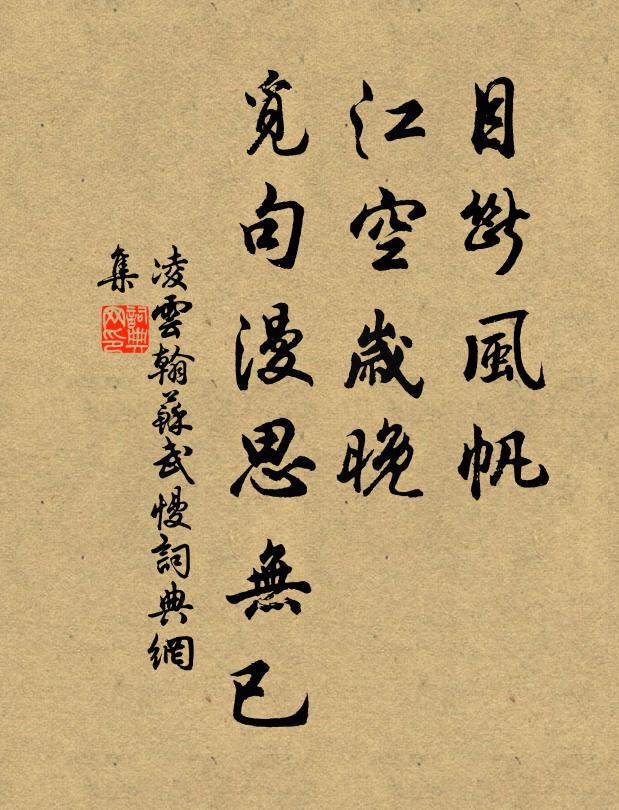 目斷風帆
江空歲晚
覓句漫思無已
凌雲翰蘇武慢詞典網
集
詞典網印